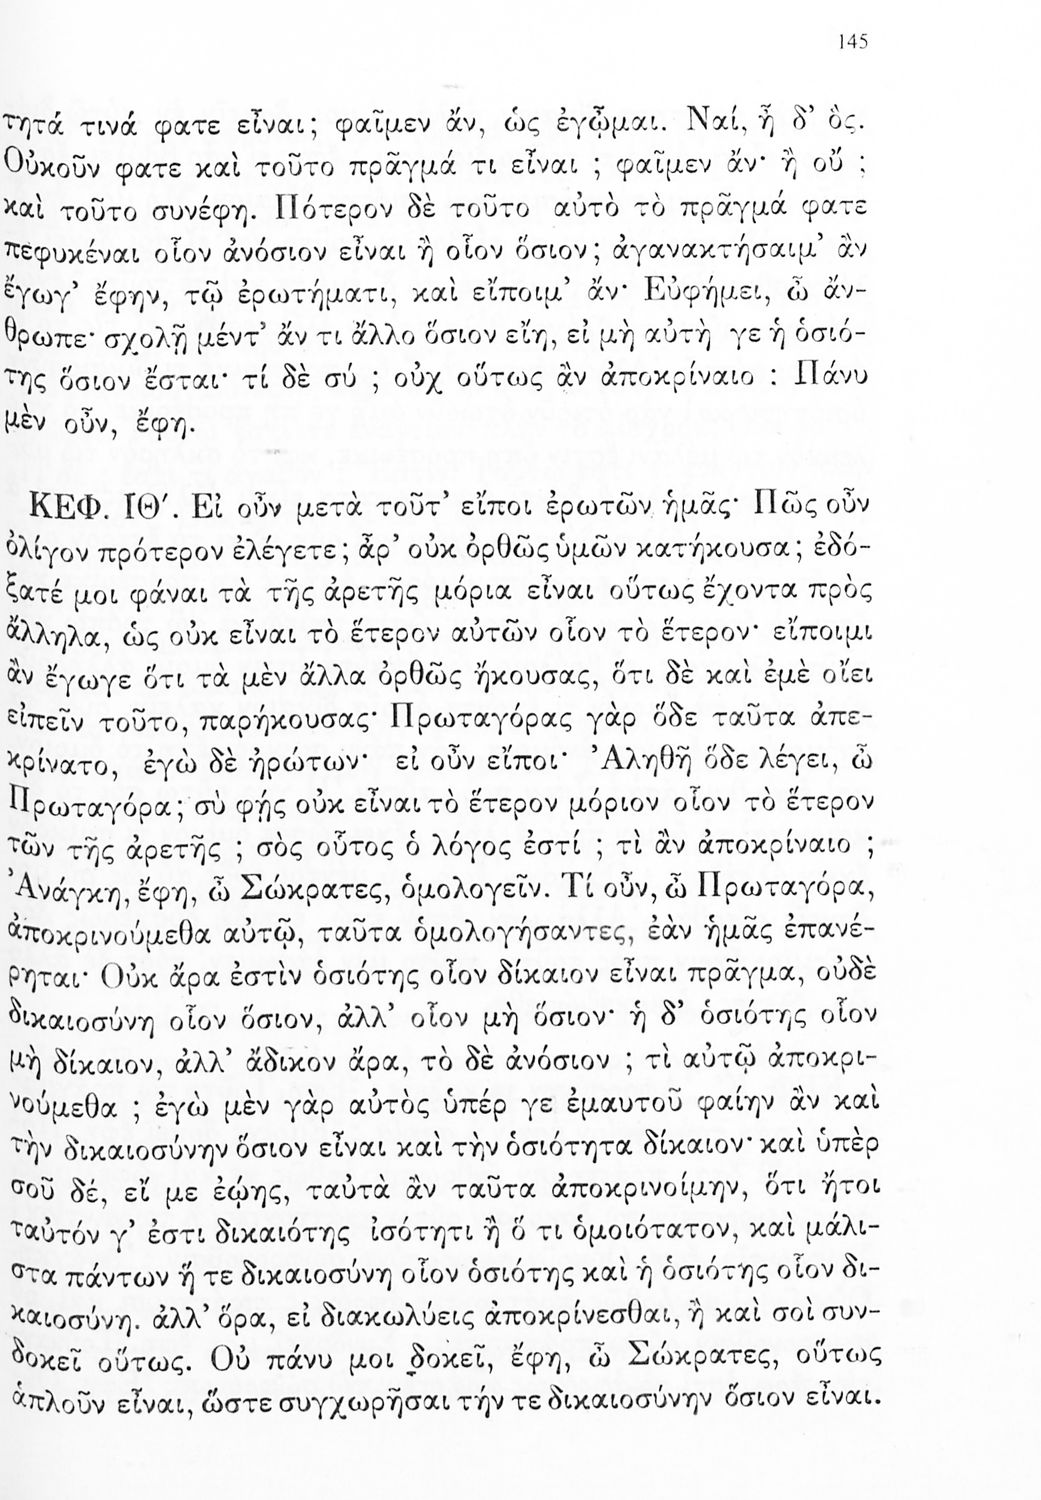 145
τητά τινά φατε εἶναι; φαῖμεν ἄν, ὡς ἐγᾦμαι. Ναί, ἦ δ’ ὅς.
Οὐκοῦν φατε καὶ τοῦτο πρᾶγμά τι εἶναι ; φαῖμεν ἄν· ἢ οὔ ;
καὶ τοῦτο συνέφη. Πότερον δὲ τοῦτο αὐτὸ τὸ πρᾶγμά φατε
πεφυκέναι οἷον ἀνόσιον εἶναι ἢ οἷον ὅσιον; ἀγανακτήσαιμ’ ἂν
ἔγωγ’ ἔφην, τῷ ἐρωτήματι, καὶ εἴποιμ’ ἄν· Εὐφήμει, ὦ ἄν-
θρωπε· σχολῇ μέντ’ ἄν τι ἄλλο ὅσιον εἴη, εἰ μὴ αὐτὴ γε ἡ ὁσιό-
της ὅσιον ἔσται· τί δὲ σύ ; οὐχ οὕτως ἂν ἀποκρίναιο : Πάνυ
μὲν οὖν, ἔφη.
ΚΕΦ. ΙΘ′. Εἰ οὖν μετὰ τοῦτ’ εἴποι ἐρωτῶν ἡμᾶς· Πῶς οὖν
ὀλίγον πρότερον ἐλέγετε; ἆρ’ οὐκ ὀρθῶς ὑμῶν κατήκουσα; ἐδό-
ξατέ μοι φάναι τὰ τῆς ἀρετῆς μόρια εἶναι οὕτως ἔχοντα πρὸς
ἄλληλα, ὡς οὐκ εἶναι τὸ ἕτερον αὐτῶν οἷον τὸ ἕτερον· εἴποιμι
ἂν ἔγωγε ὅτι τὰ μὲν ἄλλα ὀρθῶς ἤκουσας, ὅτι δὲ καὶ ἐμὲ οἴει
εἰπεῖν τοῦτο, παρήκουσας· Πρωταγόρας γὰρ ὅδε ταῦτα ἀπε-
κρίνατο, ἐγὼ δὲ ἠρώτων· εἰ οὖν εἴποι· Ἀληθῆ ὅδε λέγει, ὦ
Πρωταγόρα; σὺ φῂς οὐκ εἶναι τὸ ἕτερον μόριον οἷον τὸ ἕτερον
τῶν τῆς ἀρετῆς ; σὸς οὗτος ὁ λόγος ἐστί ; τὶ ἂν ἀποκρίναιο ;
Ἀνάγκη, ἔφη, ὦ Σώκρατες, ὁμολογεῖν. Τί οὖν, ὦ Πρωταγόρα,
ἀποκρινούμεθα αὐτῷ, ταῦτα ὁμολογήσαντες, ἐὰν ἡμᾶς ἐπανέ-
ρηται· Οὐκ ἄρα ἐστὶν ὁσιότης οἷον δίκαιον εἶναι πρᾶγμα, οὐδὲ
δικαιοσύνη οἷον ὅσιον, ἀλλ’ οἷον μὴ ὅσιον· ἡ δ’ ὁσιότης οἷον
μὴ δίκαιον, ἀλλ’ ἄδικον ἄρα, τὸ δὲ ἀνόσιον ; τὶ αὐτῷ ἀποκρι-
νούμεθα ; ἐγὼ μὲν γὰρ αὐτὸς ὑπέρ γε ἐμαυτοῦ φαίην ἂν καὶ
τὴν δικαιοσύνην ὅσιον εἶναι καὶ τὴν ὁσιότητα δίκαιον· καὶ ὑπὲρ
σοῦ δέ, εἴ με ἐῴης, ταὐτὰ ἂν ταῦτα ἀποκρινοίμην, ὅτι ἤτοι
ταὐτόν γ’ ἐστι δικαιότης ἰσότητι ἢ ὅ τι ὁμοιότατον, καὶ μάλι-
στα πάντων ἥ τε δικαιοσύνη οἷον ὁσιότης καὶ ἡ ὁσιότης οἷον δι-
καιοσύνη. ἀλλ’ ὅρα, εἰ διακωλύεις ἀποκρίνεσθαι, ἢ καὶ σοὶ συν-
δοκεῖ οὕτως. Οὐ πάνυ μοι δοκεῖ, ἔφη, ὦ Σώκρατες, οὕτως
ἁπλοῦν εἶναι, ὥστε συγχωρῆσαι τήν τε δικαιοσύνην ὅσιον εἶναι.